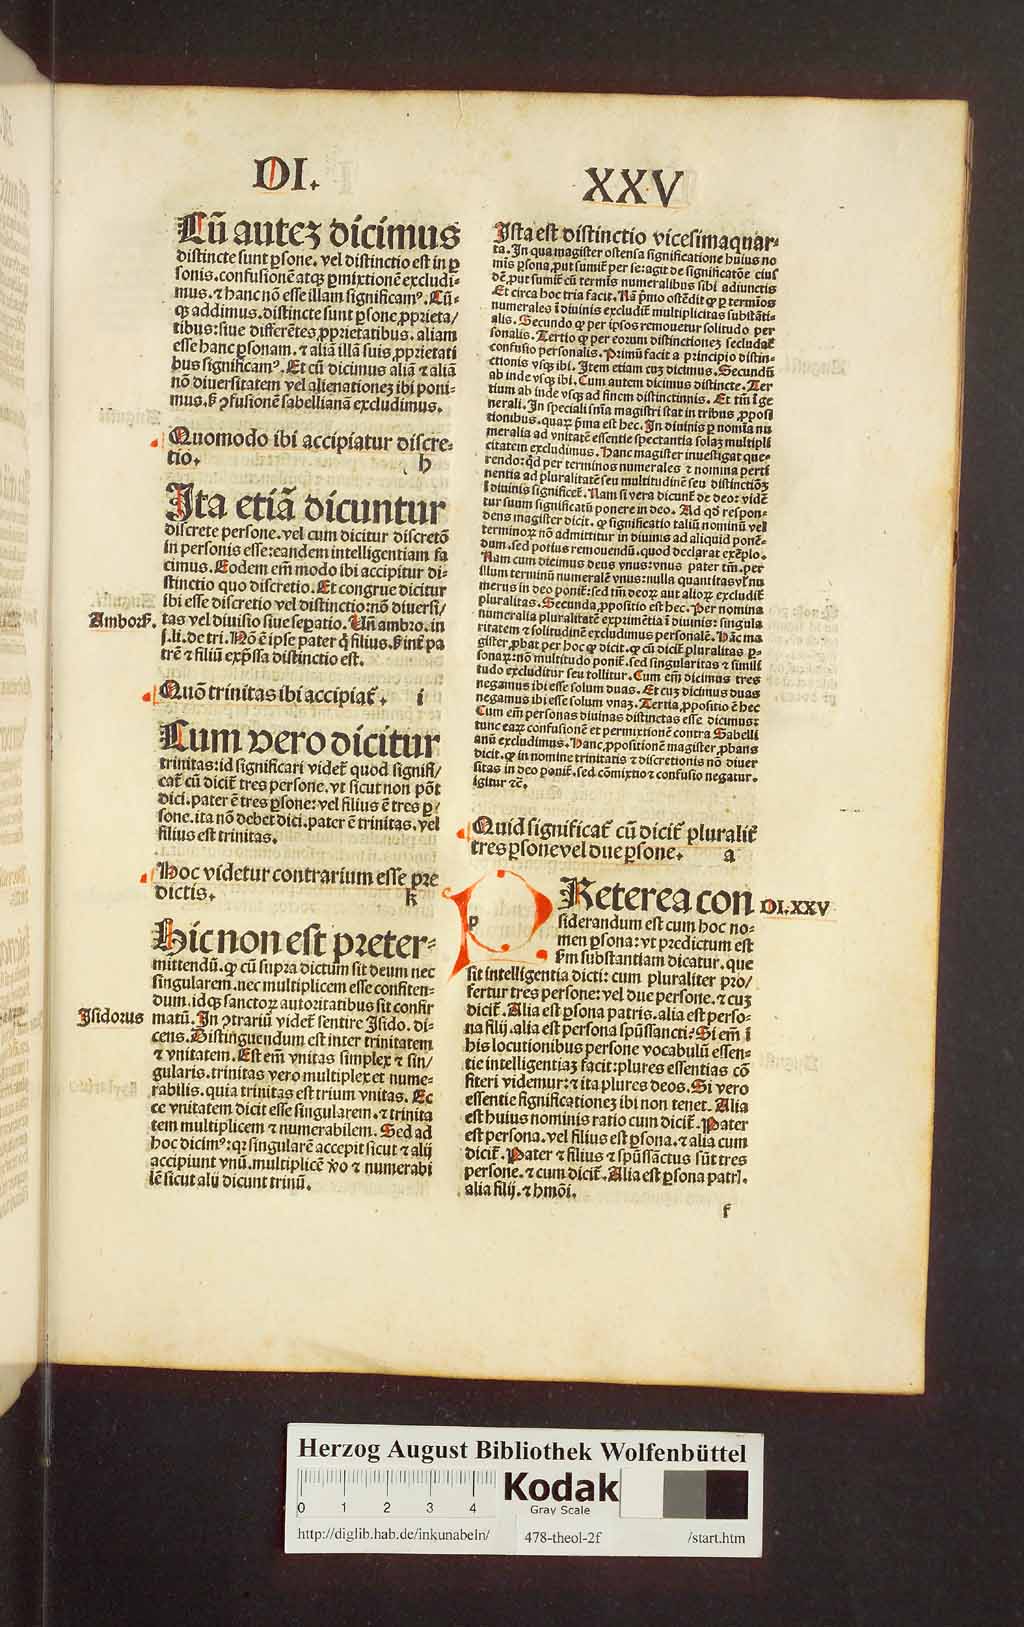 DI.
XXV
Cũ autez dicimus
distincte sunt ꝑsone. vel distinctio est in ꝑ
sonis. confusionẽ atqꝫ ꝑmixtionẽ excludi-
mus. ⁊ hanc nõ esse illam significamꝰ. Cũ-
qꝫ addimus. distincte sunt ꝑsone ꝓprieta/
tibus: siue differẽtes ꝓprietatibus. aliam
esse hanc ꝑsonam. ⁊ aliã illã suis ꝓprietati
bus significamꝰ. Et cũ dicimus aliã ⁊ aliã
nõ diuersitatem vel alienationez ibi poni-
mus. ẜ ꝯfusionẽ sabellianã excludimus.
Quomodo ibi accipiatur discre-
tio. h
Ita etiã dicuntur
discrete persone. vel cum dicitur discretõ
in personis esse: eandem intelligentiam fa
cimus. Eodem em̃ modo ibi accipitur di-
stinctio quo discretio. Et congrue dicitur
ibi esse discretio vel distinctio: nõ diuersi/
Amborẜ.
tas vel diuisio siue seꝑatio. Uñ ambro. in
j. li. de tri. Nõ ẽ ipse pater q̇ filius. ẜ int̃ pa
trẽ ⁊ filiũ exp̃ssa distinctio est.
Quõ trinitas ibi accipiat̃. i
Cum vero dicitur
trinitas: id significari videt̃ quod signifi/
cat̃ cũ dicit̃ tres persone. vt sicut non põt
dici. pater ẽ tres ꝑsone: vel filius ẽ tres ꝑ/
sone. ita nõ debet dici. pater ẽ trinitas. vel
filius est trinitas.
Hoc videtur contrarium esse pre
dictis. k
Hic non est preter-
mittendũ. ꝙ cũ supra dictum sit deum nec
singularem. nec multiplicem esse confiten-
dum. idqꝫ sanctoꝝ autoritatibus sit confir
Isidorus
matũ. In ꝯtrariũ videt̃ sentire Isido. di-
cens. Distinguendum est inter trinitatem
⁊ vnitatem. Est em̃ vnitas simplex ⁊ sin/
gularis. trinitas vero multiplex et nume-
rabilis. quia trinitas est trium vnitas. Ec
ce vnitatem dicit esse singularem. ⁊ trinita
tem multiplicem ⁊ numerabilem. Sed ad
hoc dicimꝰ: qꝛ singularẽ accepit sicut ⁊ alij
accipiunt vnũ. multiplicẽ ꝟo ⁊ numerabi
lẽ sicut alij dicunt trinũ.
Ista est distinctio vicesimaquar-
ta. In qua magister ostensa significatione huius no
mĩs ꝑsona. put sumit̃ per se: agit de significatõe eius
dẽ. put sumit̃ cũ termĩs numeralibus sibi adiunctis
Et circa hoc tria facit. Nã p̃mio ostẽdit ꝙ ꝑ termĩos
numerales ĩ diuinis excludit̃ multiplicitas substãti-
alis. Secundo ꝙ per ip̃sos remouetur solitudo per
sonalis. Tertio ꝙ per eorum distinctionez secludat̃
confusio personalis. Primũ facit a principio distin-
ctionis vsqꝫ ibi. Item etiam cuz dicimus. Secundũ
ab inde vsqꝫ ibi. Cum autem dicimus distincte. Ter
tium ab inde vsqꝫ ad finem distinctinnis. Et tm̃ ĩ ge
nerali. In speciali sñia magistri stat in tribus ꝓposi
tionibus. quaꝝ p̃ma est hec. In diuinis ꝑ nomĩa nu
meralia ad vnitatẽ essentie spectantia solaz multipli
citatem excludimus. Hanc magister inuestigat que-
rendo: qd̃ per terminos numerales ⁊ nomina perti
nentia ad pluralitatẽ seu multitudinẽ seu distinctiõez
ĩ diuinis significet̃. Nam si vera dicunt̃ de deo: vidẽ
tur suum significatũ ponere in deo. Ad qd̃ respon-
dens magister dicit. ꝙ significatio taliũ nominũ vel
terminoꝝ nõ admittitur in diuinis ad aliquid ponẽ-
dum. sed potius remouendũ. quod declarat exẽplo.
Nam cum dicimus deus vnus: vnus pater tm̃. per
illum terminũ numeralẽ vnus: nulla quantitas vl̃ nu
merus in deo ponit̃: sed tm̃ deoꝝ aut alioꝝ excludit̃
pluralitas. Secunda ꝓpositio est hec. Per nomina
numeralia pluralitatẽ exprimẽtia ĩ diuinis: singula
ritatem ⁊ solitudinẽ excludimus personalẽ. Hãc ma
gister ꝓbat per hoc ꝙ dicit. ꝙ cũ dicit̃ pluralitas ꝑ-
sonaꝝ: nõ multitudo ponit̃. sed singularitas ⁊ simili
tudo excluditur seu tollitur. Cum em̃ dicimus tres
negamus ibi esse solum duas. Et cuz dicimus duas
negamus ibi esse solum vnaz. Tertia ꝓpositio ẽ hec
Cum em̃ personas diuinas distinctas esse dicimus:
tunc eaꝝ confusionẽ et permixtionẽ contra Sabelli
anũ excludimus. Hanc ꝓpositionẽ magister ꝓbans
dicit. ꝙ in nomine trinitatis ⁊ discretionis nõ diuer
sitas in deo ponit̃. sed cõmixtio ⁊ confusio negatur.
igitur ⁊c̃.
Quid significat̃ cũ dicit̃ pluralit̃
tres ꝑsone vel due ꝑsone. a
p
Reterea con
DI.XXV
siderandum est cum hoc no-
men ꝑsona: vt predictum est
ẜm substantiam dicatur. que
sit intelligentia dicti: cum pluraliter pro/
fertur tres persone: vel due persone. ⁊ cuz
dicit̃. Alia est ꝑsona patris. alia est perso-
na filij. alia est persona spũssancti: Si em̃ ĩ
his locutionibus persone vocabulũ essen-
tie intelligentiaz facit: plures essentias cõ
fiteri videmur: ⁊ ita plures deos. Si vero
essentie significationez ibi non tenet. Alia
est huius nominis ratio cum dicit̃. Pater
est persona. vel filius est ꝑsona. ⁊ alia cum
dicit̃. Pater ⁊ filius ⁊ spũssãctus sũt tres
persone. ⁊ cum dicit̃. Alia est ꝑsona patrꝭ.
alia filij. ⁊ hmõi.
f
Herzog August Bibliothek Wolfenbüttel
0 1 2 3 4
Kodak
Gray Scale
http://diglib.hab.de/inkunabeln/ 478-theol-2f /start.htm